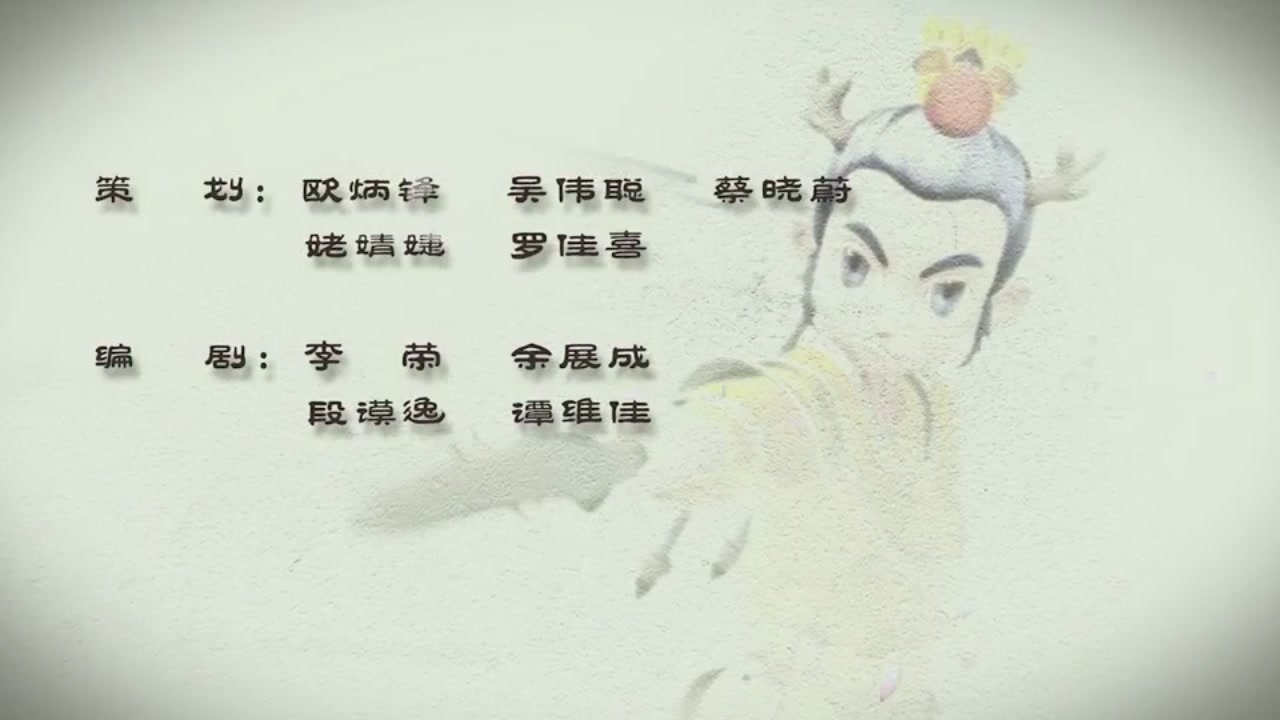 策 划：欧炳锋 吴伟聪 蔡晓蔚
姥婧婕 罗佳喜
编 剧：李 荣 余展成
段谟逸 谭维佳